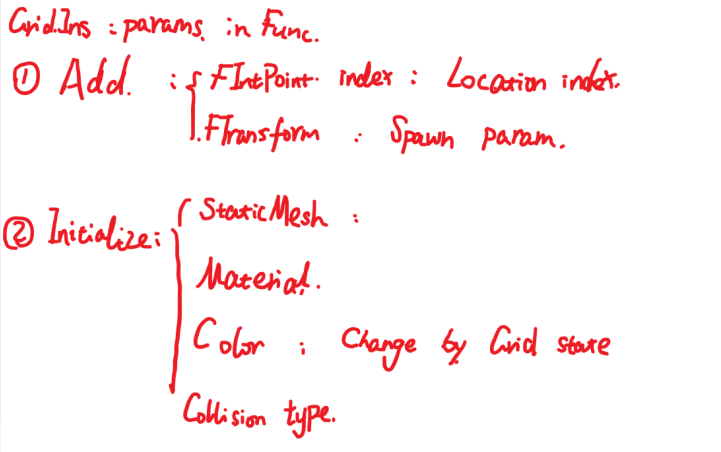 Grid.Ins : params. in Func.
① Add. : { FIntPoint. index : Location index.
FTransform : Spawn param.
② Initialize : { Static Mesh :
Material.
Color : Change by Grid state
Collision type.